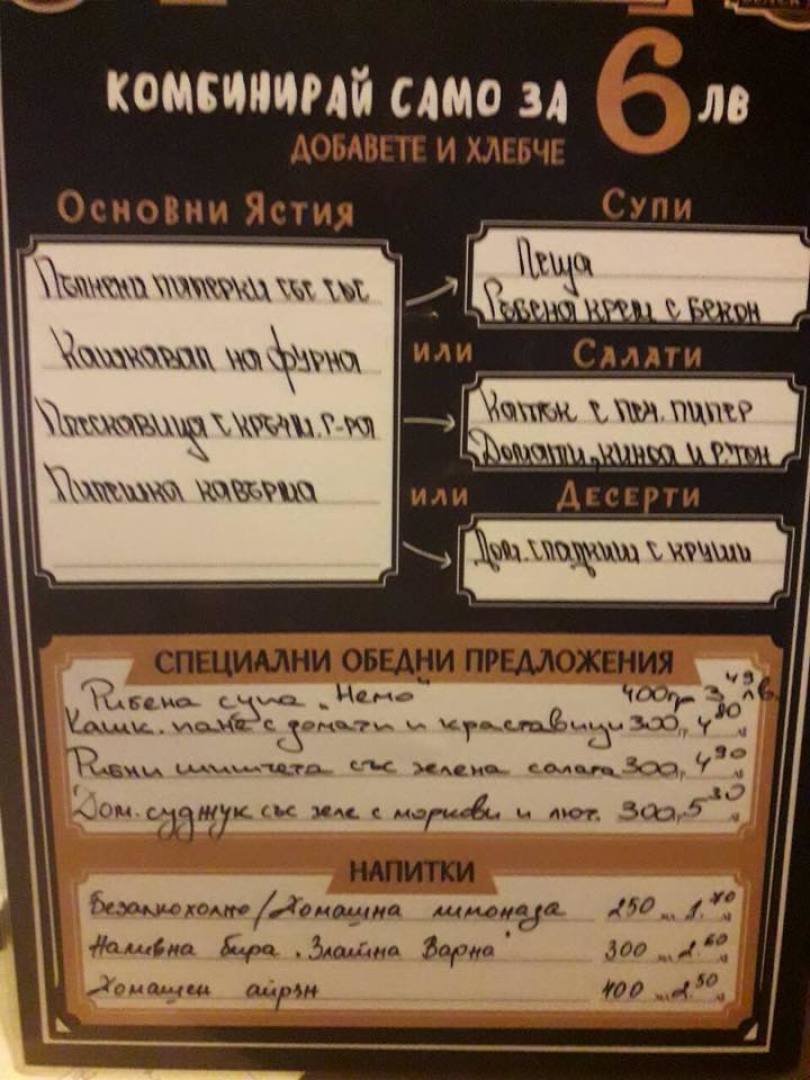 КОМБИНИРАЙ САМО ЗА 6 ЛВ
ДОБАВЕТЕ И ХЛЕБЧЕ
ОСНОВНИ ЯСТИЯ
Пълнени пиперки със сос
Кашкавал на фурна
Плескавица с кръчм. г-ра
Пилешка кавърма
СУПИ
Леща
Гъбена крем с бекон
ИЛИ
САЛАТИ
Катък с печ. пипер
Домати, киноа и р.тон
ИЛИ
ДЕСЕРТИ
Дом. сладкиш с круши
СПЕЦИАЛНИ ОБЕДНИ ПРЕДЛОЖЕНИЯ
Рибена супа "Немо" 400гр 3.49 лв.
Кашк. пане с домати и краставици 300гр 4.80
Рибни шишчета със зелена салата 300гр 4.90
Дом. суджук със зеле с моркови и лют. 300гр 5.30
НАПИТКИ
Безалкохолно/Домашна лимонада 250 мл 1.70
Наливна бира "Златна Варна" 300 мл 2.60
Домашен айрян 400 мл 2.50